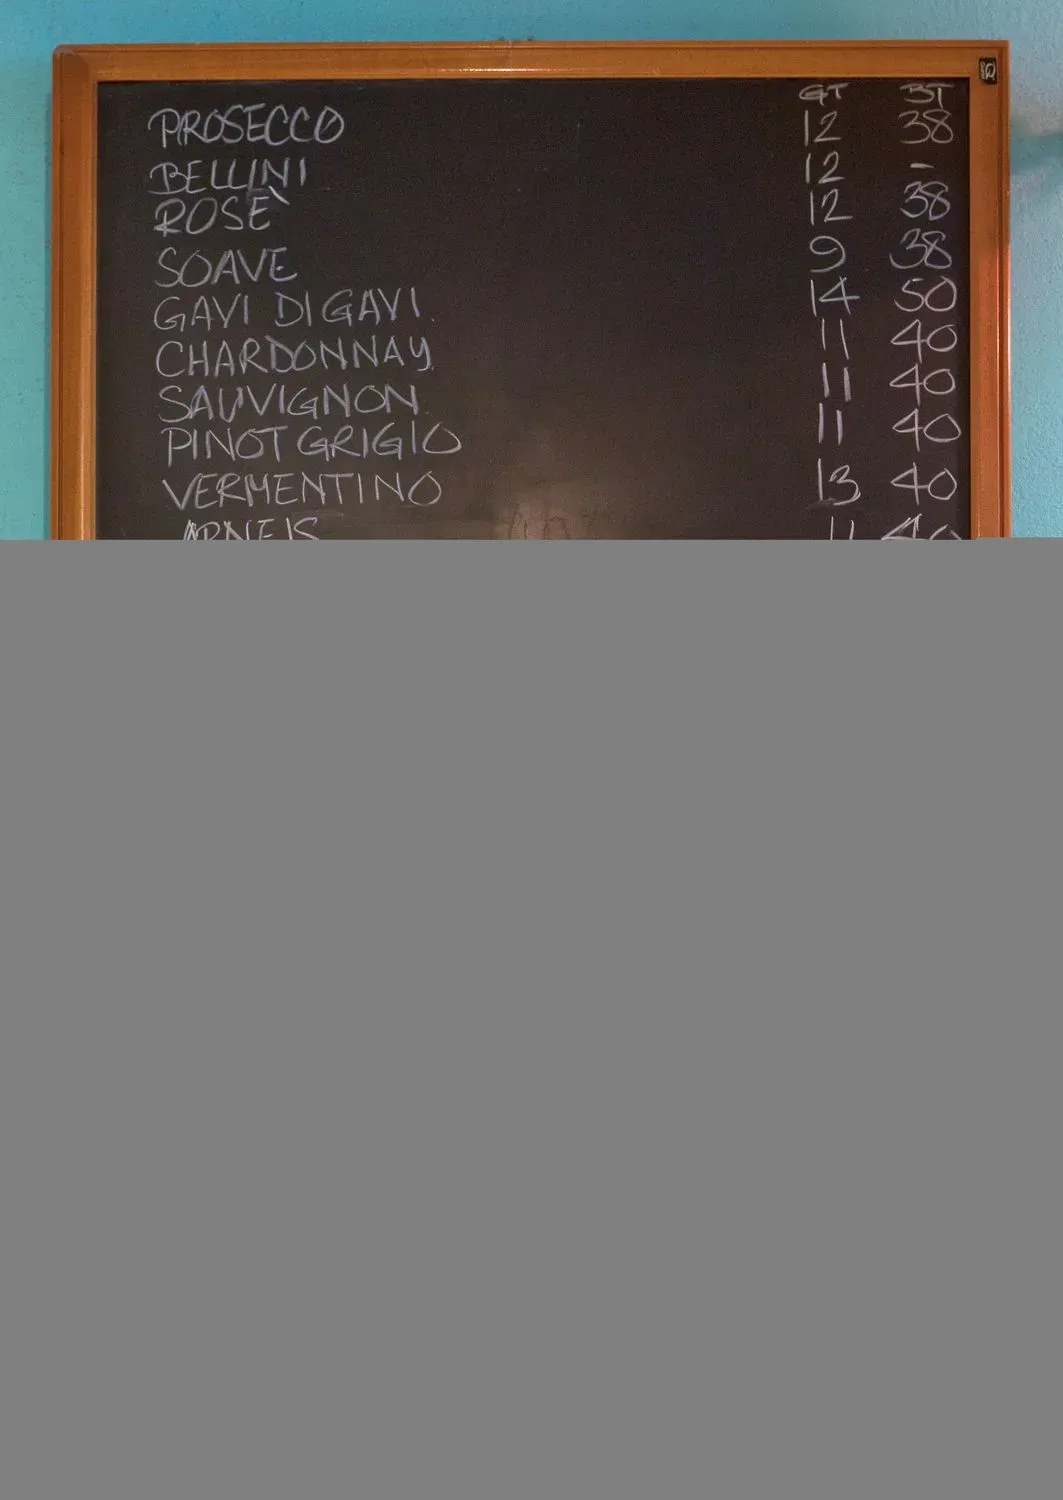 GT BT
PROSECCO 12 38
BELLINI 12 -
ROSÈ 12 38
SOAVE 9 38
GAVI DI GAVI. 14 50
CHARDONNAY 11 40
SAUVIGNON 11 40
PINOT GRIGIO 11 40
VERMENTINO 13 40
ARNEIS 11 40